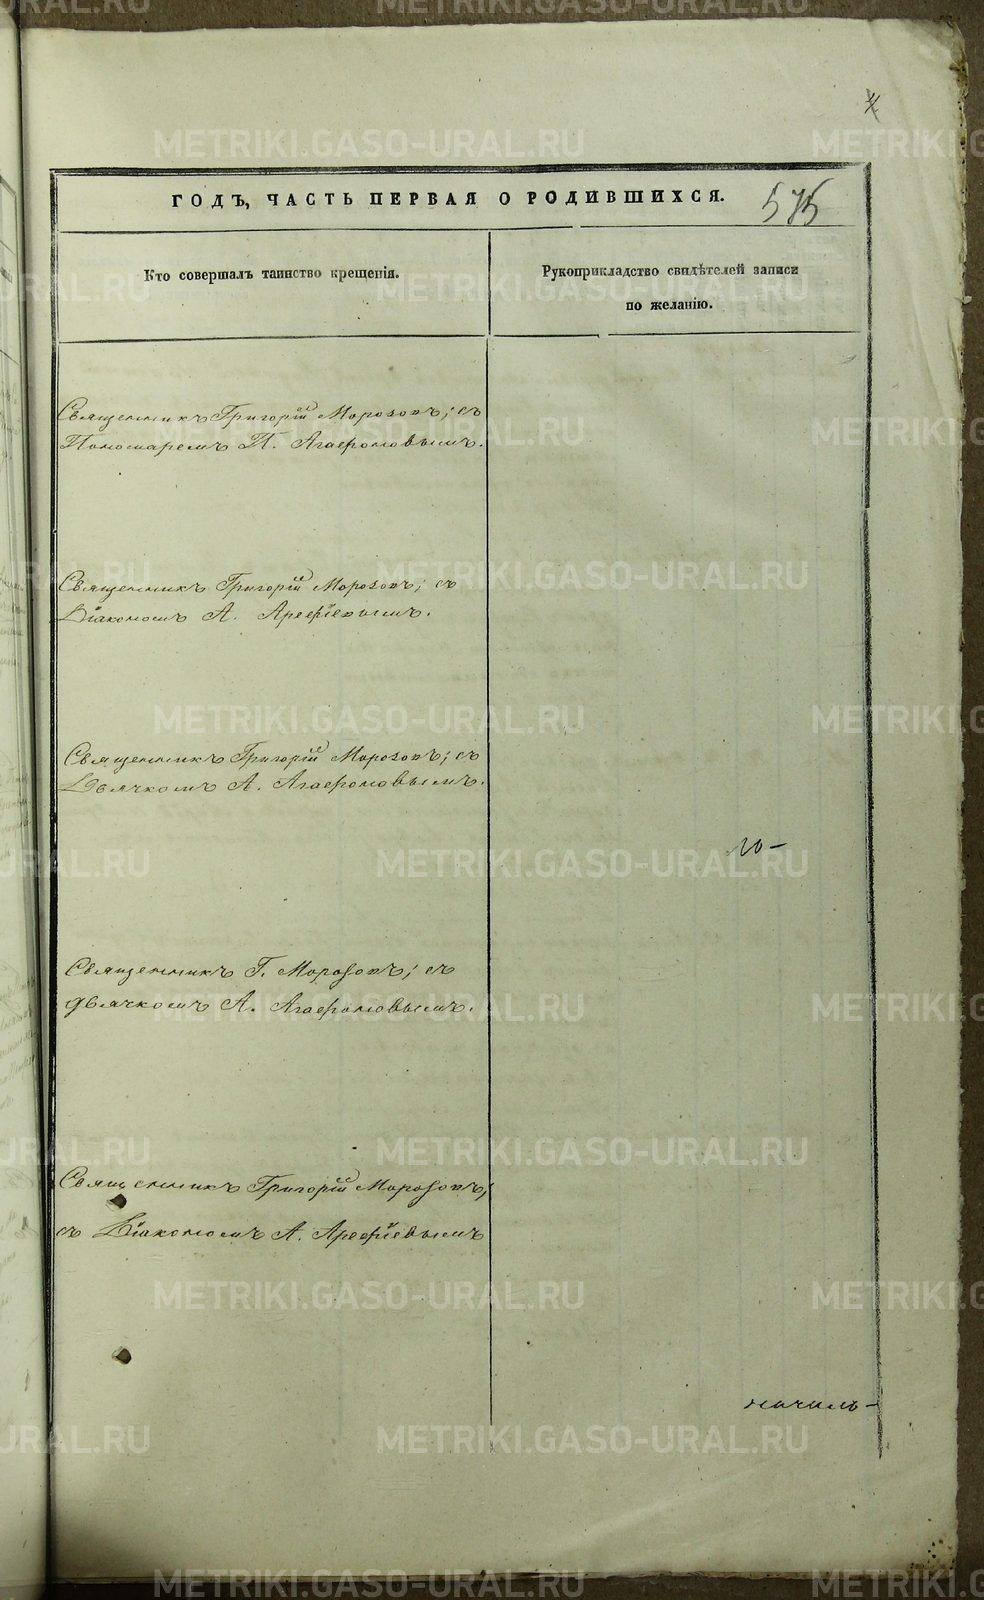 ГОДЪ, ЧАСТЬ ПЕРВАЯ О РОДИВШИХСЯ.
575
Кто совершалъ таинство крещенія.
Рукоприкладство свидѣтелей записи
по желанію.
Священникъ Григорій Морозовъ; съ
Пономаремъ П. Агафоновымъ.
Священникъ Григорій Морозовъ; съ
Діакономъ А. Арефіевымъ.
Священникъ Григорій Морозовъ; съ
Дьячкомъ А. Агафоновымъ.
Священникъ Г. Морозовъ; съ
дьячкомъ А. Агафоновымъ.
Священникъ Григорій Морозовъ;
съ Діакономъ А. Арефіевымъ
METRIKI.GASO-URAL.RU